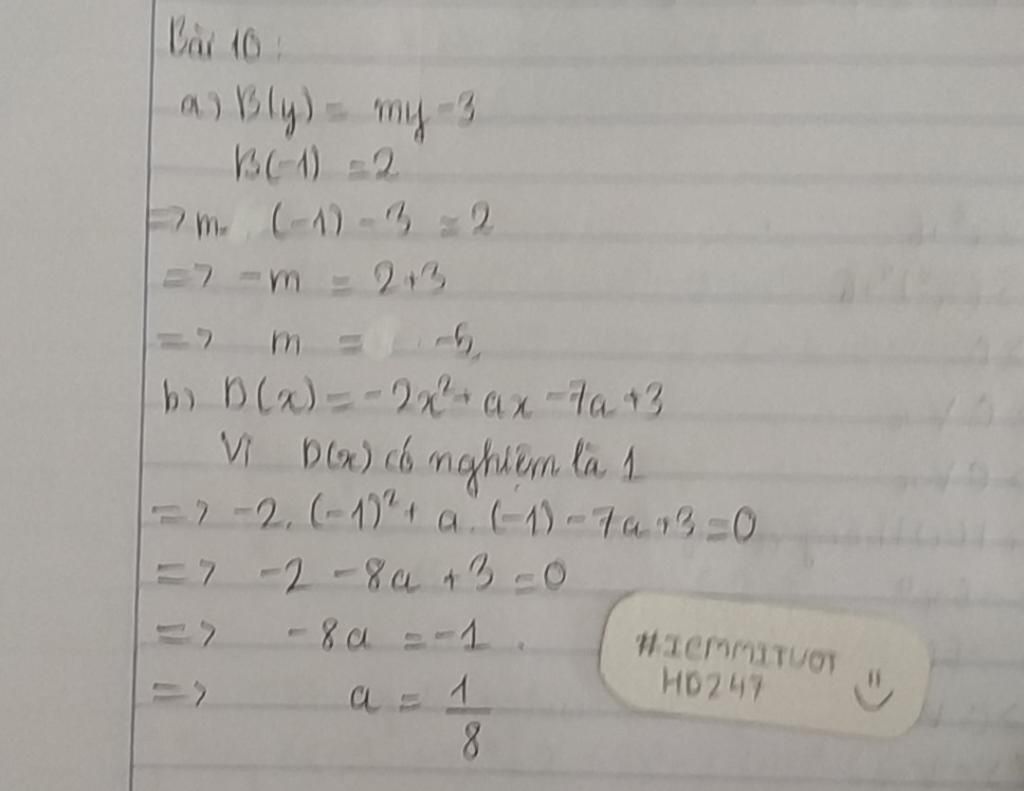 Bài 10:
a) B(y) = my - 3
B(-1) = 2
=> m. (-1) - 3 = 2
=> -m = 2+3
=> m = -5
b) D(x) = -2x² + ax - 7a + 3
Vì D(x) có nghiệm là 1
=> -2. (-1)² + a. (-1) - 7a + 3 = 0
=> -2 - 8a + 3 = 0
=> -8a = -1.
=> a = 1/8
#IEMMITUOT
HD247